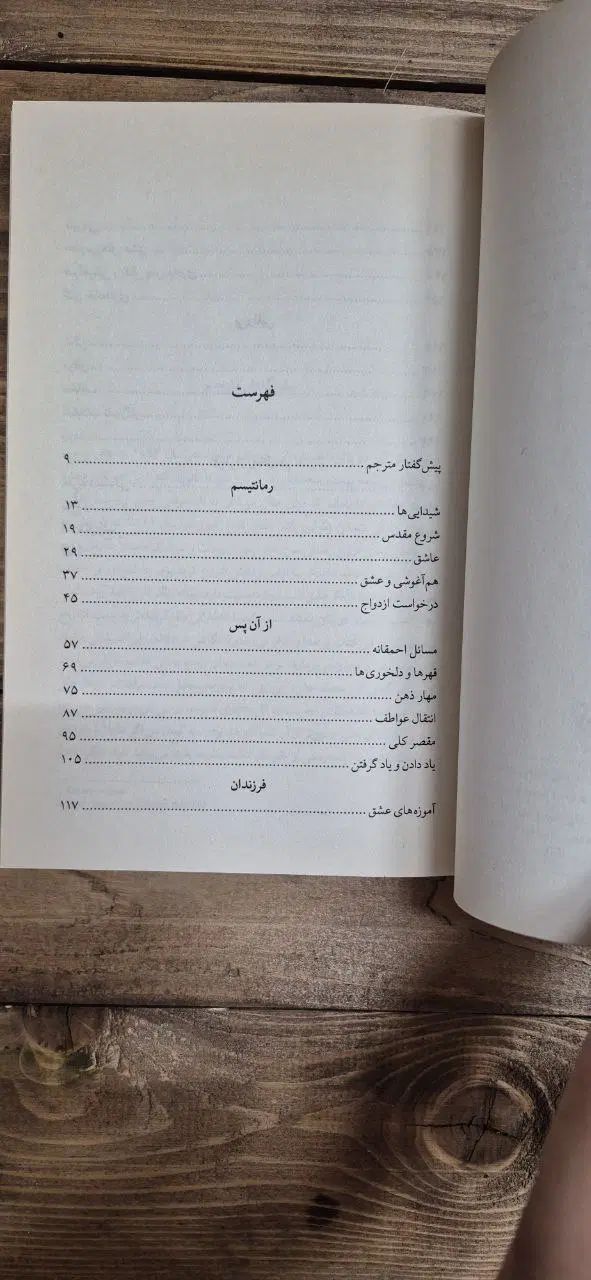 فهرست
پیش‌گفتار مترجم ........ ۹
رمانتیسم
شیدایی‌ها ........ ۱۳
شروع مقدس ........ ۱۹
عاشق ........ ۲۹
هم‌آغوشی و عشق ........ ۳۷
درخواست ازدواج ........ ۴۵
از آن پس
مسائل احمقانه ........ ۵۷
قهرها و دلخوری‌ها ........ ۶۹
مهار ذهن ........ ۷۵
انتقال عواطف ........ ۸۷
مقصر کلی ........ ۹۵
یاد دادن و یاد گرفتن ........ ۱۰۵
فرزندان
آموزه‌های عشق ........ ۱۱۷